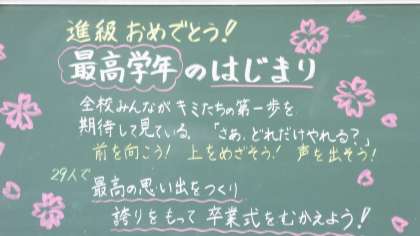 進級 おめでとう!
最高学年 のはじまり
全校みんなが キミたちの第一歩を
期待して見ている。「さあ、どれだけやれる?」
前を向こう! 上をめざそう! 声を出そう!
29人で
最高の思い出をつくり
誇りをもって 卒業式をむかえよう!